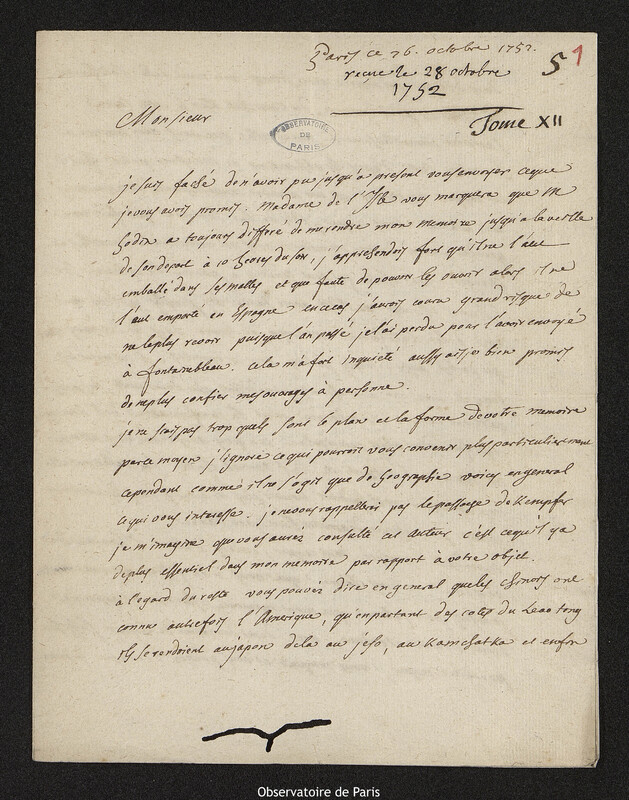 Paris ce 26. octobre 1752.
reçue le 28 octobre
1752
5 1
Tome XII
Monsieur
OBSERVATOIRE
DE
PARIS
je suis faché de n'avoir pu jusqu'a present vous envoyer ceque
je vous avois promis. Madame de l'Isle vous marquera que M
Godin a toujours differé de me rendre mon memoire jusqu'a la veille
de son depart à 10 heores du soir, j'apprehendois fort qu'il ne l'eut
emballé dans ses malles et que faute de pouvoir les ouvrir alors il ne
l'eut emporté en Espagne en ce cas j'aurois couru grand risque de
ne le plus revoir puisque l'an passé je l'ai perdu pour l'avoir envoyé
à fontainebleau. cela m'a fort inquieté aussy ai je bien promis
de ne plus confier mes ouvrages à personne.
je ne sais pas trop quels sont le plan et la forme de votre memoire
par ce moyen j'ignore ce qui pourroit vous convenir plus particulierement
cependant comme il ne s'agit que de Geographie voicy en general
ce qui vous interesse. je ne vous rappellerai pas le passage de Kempfer
je m'imagine que vous aurés consulté cet auteur c'est ce qu'il y a
de plus essentiel dans mon memoire par rapport à votre objet.
à l'egard du reste vous pouvés dire en general que les chinois ont
connu autrefois l'Amerique, qu'en partant des cotes du Leao tong
ils se rendoient au japon de la au jeso, au Kamchatka et enfin
Observatoire de Paris